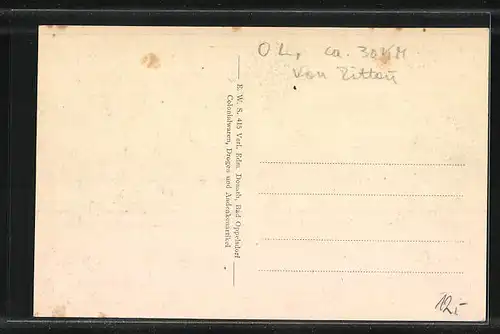 OL, ca. 30 KM
von Zittau
E. W. S. 415 Verl. Edm. Demuth, Bad Oppelsdorf
Colonialwaren, Drogen und Andenkenartikel
12,-